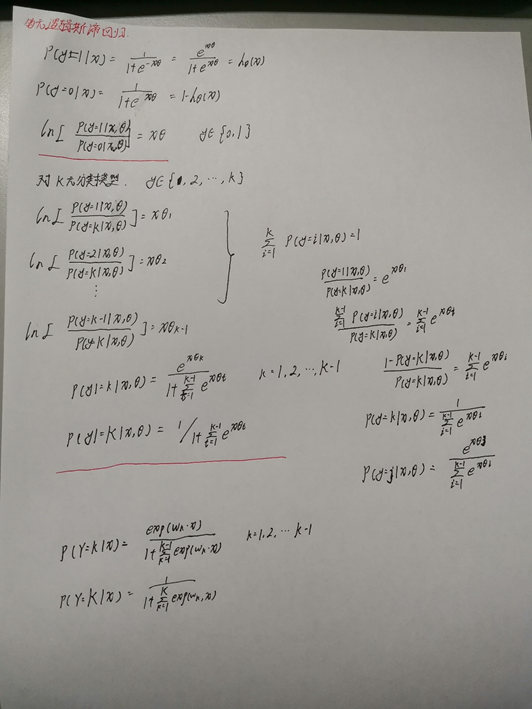 多元逻辑斯谛回归
P(y=1|x) = 1/(1+e^{-xθ}) = e^{xθ}/(1+e^{xθ}) = h_θ(x)
P(y=0|x) = 1/(1+e^{xθ}) = 1-h_θ(x)
ln[ P(y=1|x,θ)/P(y=0|x,θ) ] = xθ    y∈{0,1}
对K元分类模型. y∈{1,2,⋯,K}
ln[ P(y=1|x,θ)/P(y=K|x,θ) ] = xθ_1
ln[ P(y=2|x,θ)/P(y=K|x,θ) ] = xθ_2
⋮
ln[ P(y=K-1|x,θ)/P(y=K|x,θ) ] = xθ_{K-1}
∑_{i=1}^{K} P(y=i|x,θ)=1
P(y=1|x,θ)/P(y=K|x,θ) = e^{xθ_1}
∑_{i=1}^{K-1} P(y=i|x,θ)/P(y=K|x,θ) = ∑_{i=1}^{K-1} e^{xθ_i}
(1-P(y=K|x,θ))/P(y=K|x,θ) = ∑_{i=1}^{K-1} e^{xθ_i}
P(y=K|x,θ) = 1/∑_{i=1}^{K-1} e^{xθ_i}
P(y=j|x,θ) = e^{xθ_j}/∑_{i=1}^{K-1} e^{xθ_i}
P(y|=k|x,θ) = e^{xθ_k}/(1+∑_{t=1}^{K-1} e^{xθ_t})    k=1,2,⋯,K-1
P(y|=K|x,θ) = 1/1+∑_{t=1}^{K-1} e^{xθ_t}
P(Y=k|x) = exp(w_k·x)/(1+∑_{k=1}^{K-1} exp(w_k·x))    k=1,2,⋯K-1
P(Y=K|x) = 1/(1+∑_{k=1}^{K} exp(w_k,x))